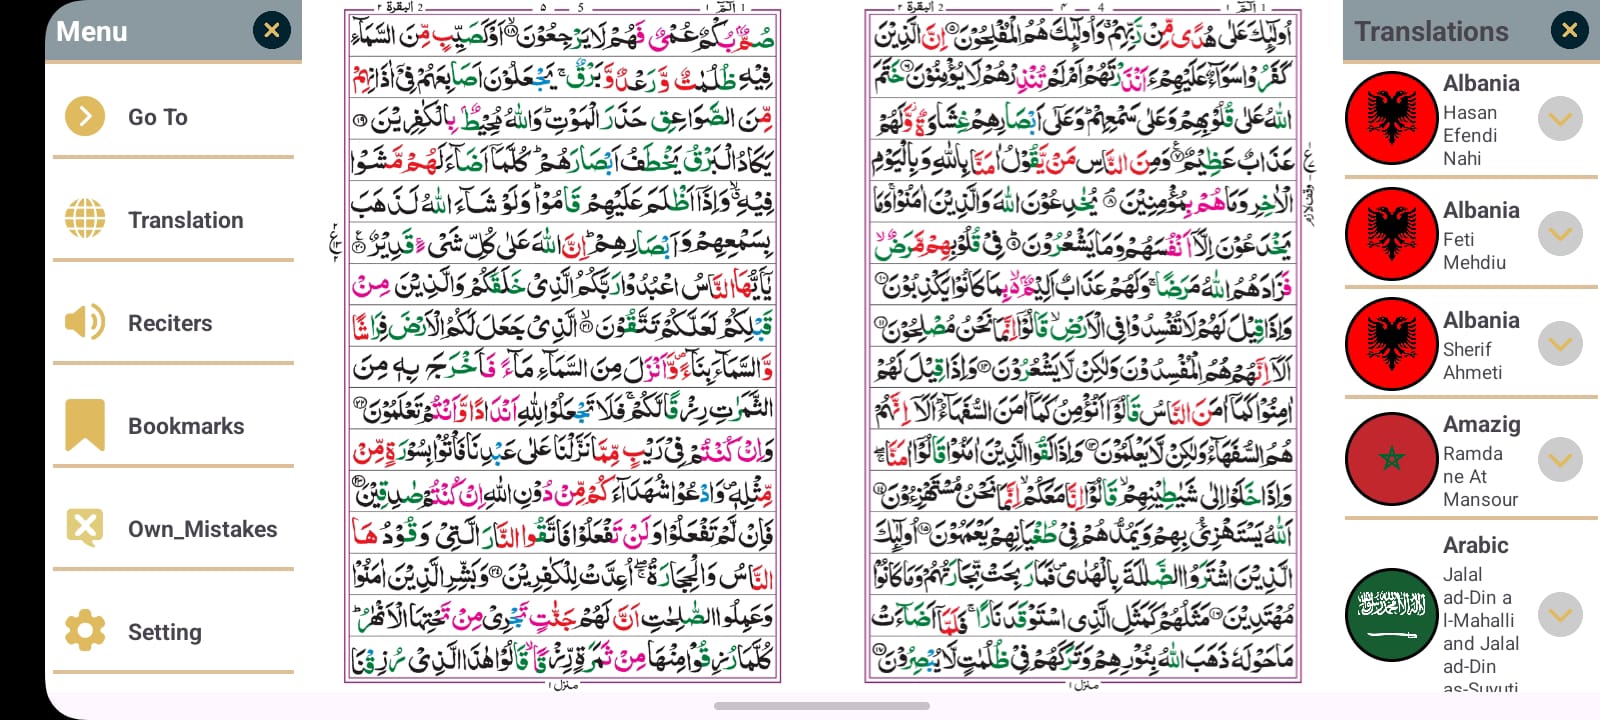 Menu
Go To
Translation
Reciters
Bookmarks
Own_Mistakes
Setting
2 البقرة ٢
۵
5
1 الٓمّٓ ١
صُمٌّۢ بُكْمٌ عُمْىٌ فَهُمْ لَا يَرْجِعُوْنَ ۙ‏﴿۱۸﴾ اَوْ كَصَيِّبٍ مِّنَ السَّمَآءِ
فِيْهِ ظُلُمٰتٌ وَّرَعْدٌ وَّبَرْقٌ‌ ۚ يَجْعَلُوْنَ اَصَابِعَهُمْ فِىْٓ اٰذَانِهِمْ
مِّنَ الصَّوَاعِقِ حَذَرَ الْمَوْتِ‌ؕ وَاللّٰهُ مُحِيْطٌۢ بِالْكٰفِرِيْنَ ﴿۱۹﴾
يَكَادُ الْبَرْقُ يَخْطَفُ اَبْصَارَهُمْ‌ؕ كُلَّمَآ اَضَآءَ لَهُمْ مَّشَوْا
فِيْهِ ۙۗ وَاِذَآ اَظْلَمَ عَلَيْهِمْ قَامُوْا‌ؕ وَلَوْ شَآءَ اللّٰهُ لَذَهَبَ
بِسَمْعِهِمْ وَاَبْصَارِهِمْ‌ؕ اِنَّ اللّٰهَ عَلٰى كُلِّ شَىْءٍ قَدِيْرٌ ﴿۲۰﴾
يٰٓاَيُّهَا النَّاسُ اعْبُدُوْا رَبَّكُمُ الَّذِىْ خَلَقَكُمْ وَالَّذِيْنَ مِنْ
قَبْلِكُمْ لَعَلَّكُمْ تَتَّقُوْنَ ۙ‏﴿۲۱﴾ الَّذِىْ جَعَلَ لَكُمُ الْاَرْضَ فِرَاشًا
وَّالسَّمَآءَ بِنَآءً وَّاَنْزَلَ مِنَ السَّمَآءِ مَآءً فَاَخْرَجَ بِهٖ مِنَ
الثَّمَرٰتِ رِزْقًا لَّكُمْ‌ۚ فَلَا تَجْعَلُوْا لِلّٰهِ اَنْدَادًا وَّاَنْتُمْ تَعْلَمُوْنَ ﴿۲۲﴾
وَاِنْ کُنْتُمْ فِىْ رَيْبٍ مِّمَّا نَزَّلْنَا عَلٰى عَبْدِنَا فَاْتُوْا بِسُوْرَةٍ مِّنْ
مِّثْلِهٖ وَادْعُوْا شُهَدَآءَكُمْ مِّنْ دُوْنِ اللّٰهِ اِنْ كُنْتُمْ صٰدِقِيْنَ ﴿۲۳﴾
فَاِنْ لَّمْ تَفْعَلُوْا وَلَنْ تَفْعَلُوْا فَاتَّقُوا النَّارَ الَّتِىْ وَقُوْدُهَا
النَّاسُ وَالْحِجَارَةُ ۖۚ اُعِدَّتْ لِلْكٰفِرِيْنَ ﴿۲۴﴾ وَبَشِّرِ الَّذِيْنَ اٰمَنُوْا
وَعَمِلُوا الصّٰلِحٰتِ اَنَّ لَهُمْ جَنّٰتٍ تَجْرِىْ مِنْ تَحْتِهَا الْاَنْهٰرُ‌ؕ
كُلَّمَا رُزِقُوْا مِنْهَا مِنْ ثَمَرَةٍ رِّزْقًا‌ ۙ قَالُوْا هٰذَا الَّذِىْ رُزِقْنَا
منزل ١
2 البقرة ٢
۴
4
1 الٓمّٓ ١
اُولٰٓئِكَ عَلٰى هُدًى مِّنْ رَّبِّهِمْ‌ وَاُولٰٓئِكَ هُمُ الْمُفْلِحُوْنَ ﴿۵﴾ اِنَّ الَّذِيْنَ
كَفَرُوْا سَوَآءٌ عَلَيْهِمْ ءَاَنْذَرْتَهُمْ اَمْ لَمْ تُنْذِرْهُمْ لَا يُؤْمِنُوْنَ ﴿۶﴾ خَتَمَ
اللّٰهُ عَلٰى قُلُوْبِهِمْ وَعَلٰى سَمْعِهِمْ‌ؕ وَعَلٰٓى اَبْصَارِهِمْ غِشَاوَةٌ وَّلَهُمْ
عَذَابٌ عَظِيْمٌ ﴿۷﴾ وَمِنَ النَّاسِ مَنْ يَّقُوْلُ اٰمَنَّا بِاللّٰهِ وَبِالْيَوْمِ
الْاٰخِرِ وَمَا هُمْ بِمُؤْمِنِيْنَ‌ۘ ﴿۸﴾ يُخٰدِعُوْنَ اللّٰهَ وَالَّذِيْنَ اٰمَنُوْا‌ۚ وَمَا
يَخْدَعُوْنَ اِلَّآ اَنْفُسَهُمْ وَمَا يَشْعُرُوْنَؕ ﴿۹﴾ فِىْ قُلُوْبِهِمْ مَّرَضٌۙ
فَزَادَهُمُ اللّٰهُ مَرَضًا‌ۚ وَلَهُمْ عَذَابٌ اَلِيْمٌۢ ۙ بِمَا كَانُوْا يَكْذِبُوْنَ ﴿۱۰﴾
وَاِذَا قِيْلَ لَهُمْ لَا تُفْسِدُوْا فِى الْاَرْضِۙ قَالُوْٓا اِنَّمَا نَحْنُ مُصْلِحُوْنَ ﴿۱۱﴾
اَلَآ اِنَّهُمْ هُمُ الْمُفْسِدُوْنَ وَلٰكِنْ لَّا يَشْعُرُوْنَ ﴿۱۲﴾ وَاِذَا قِيْلَ لَهُمْ
اٰمِنُوْا كَمَآ اٰمَنَ النَّاسُ قَالُوْٓا اَنُؤْمِنُ كَمَآ اٰمَنَ السُّفَهَآءُ‌ ؕ اَلَآ اِنَّهُمْ
هُمُ السُّفَهَآءُ وَلٰكِنْ لَّا يَعْلَمُوْنَ ﴿۱۳﴾ وَاِذَا لَقُوا الَّذِيْنَ اٰمَنُوْا قَالُوْٓا اٰمَنَّا ۖۚ
وَاِذَا خَلَوْا اِلٰى شَيٰطِيْنِهِمْۙ قَالُوْٓا اِنَّا مَعَكُمْۙ اِنَّمَا نَحْنُ مُسْتَهْزِءُوْنَ ﴿۱۴﴾
اَللّٰهُ يَسْتَهْزِئُ بِهِمْ وَيَمُدُّهُمْ فِىْ طُغْيَانِهِمْ يَعْمَهُوْنَ ﴿۱۵﴾ اُولٰٓئِكَ
الَّذِيْنَ اشْتَرَوُا الضَّلٰلَةَ بِالْهُدٰى فَمَا رَبِحَتْ تِّجَارَتُهُمْ وَمَا كَانُوْا
مُهْتَدِيْنَ ﴿۱۶﴾ مَثَلُهُمْ كَمَثَلِ الَّذِى اسْتَوْقَدَ نَارًا‌ ۚ فَلَمَّآ اَضَآءَتْ
مَا حَوْلَهٗ ذَهَبَ اللّٰهُ بِنُوْرِهِمْ وَتَرَكَهُمْ فِىْ ظُلُمٰتٍ لَّا يُبْصِرُوْنَ ﴿۱۷﴾
منزل ١
Translations
Albania
Hasan
Efendi
Nahi
Albania
Feti
Mehdiu
Albania
Sherif
Ahmeti
Amazig
Ramda
ne At
Mansour
Arabic
Jalal
ad-Din a
l-Mahalli
and Jalal
ad-Din
as-Suyuti